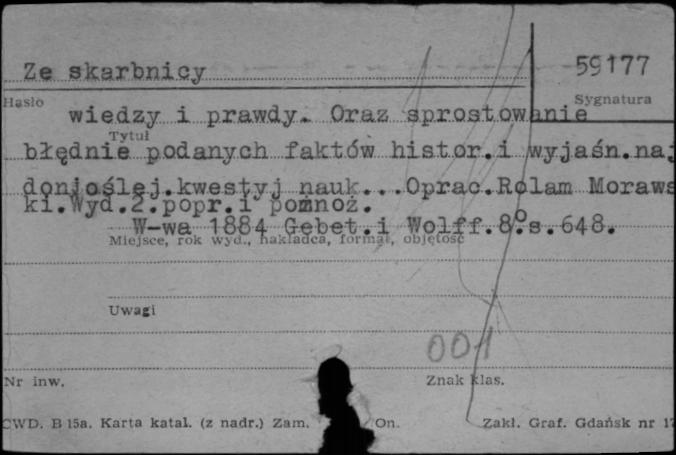 Ze skarbnicy 59177
Hasło Sygnatura
wiedzy i prawdy. Oraz sprostowanie
Tytuł
błędnie podanych faktów histor.i wyjaśn.naj
donioślej.kwestyj nauk...Oprac.Rolam Moraws
ki.Wyd.2.popr.i pomnoż.
W-wa 1884 Gebet.i Wolff.8° s.648.
Miejsce, rok wyd., nakładca, format, objętość
Uwagi
001
Nr inw. Znak klas.
CWD. B 15a. Karta katal. (z nadr.) Zam. On. Zakł. Graf. Gdańsk nr 17